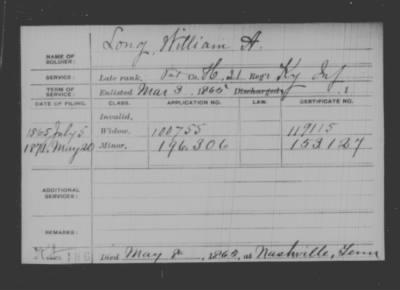 NAME OF SOLDIER: Long, William A.
SERVICE: Late rank, Pvt Co. H, 21 Reg't Ky Inf
TERM OF SERVICE: Enlisted Mar 3, 1865 Discharged , 1
DATE OF FILING. CLASS. APPLICATION NO. LAW. CERTIFICATE NO.
Invalid.
1865 July 5 Widow. 100755 119115
1871 May 20 Minor. 196.306 153127
ADDITIONAL SERVICES:
REMARKS:
Died May 8, 1865, at Nashville, Tenn